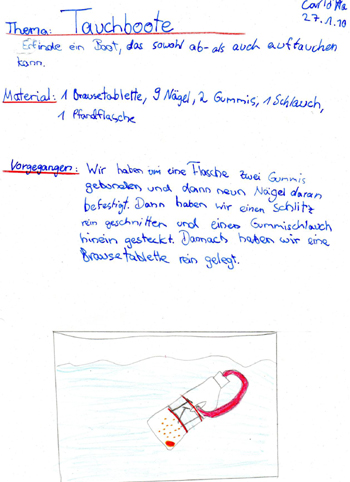 Thema: Tauchboote
27.1.10
Erfinde ein Boot, das sowohl ab- als auch auftauchen
kann.
Material: 1 Brausetablette, 9 Nägel, 2 Gummis, 1 Schlauch,
1 Pfandflasche
Vorgegangen: Wir haben um eine Flasche zwei Gummis
gebunden und dann neun Nägel daran
befestigt. Dann haben wir einen Schlitz
rein geschnitten und einen Gummischlauch
hinein gesteckt. Dannach haben wir eine
Brausetablette rein gelegt.